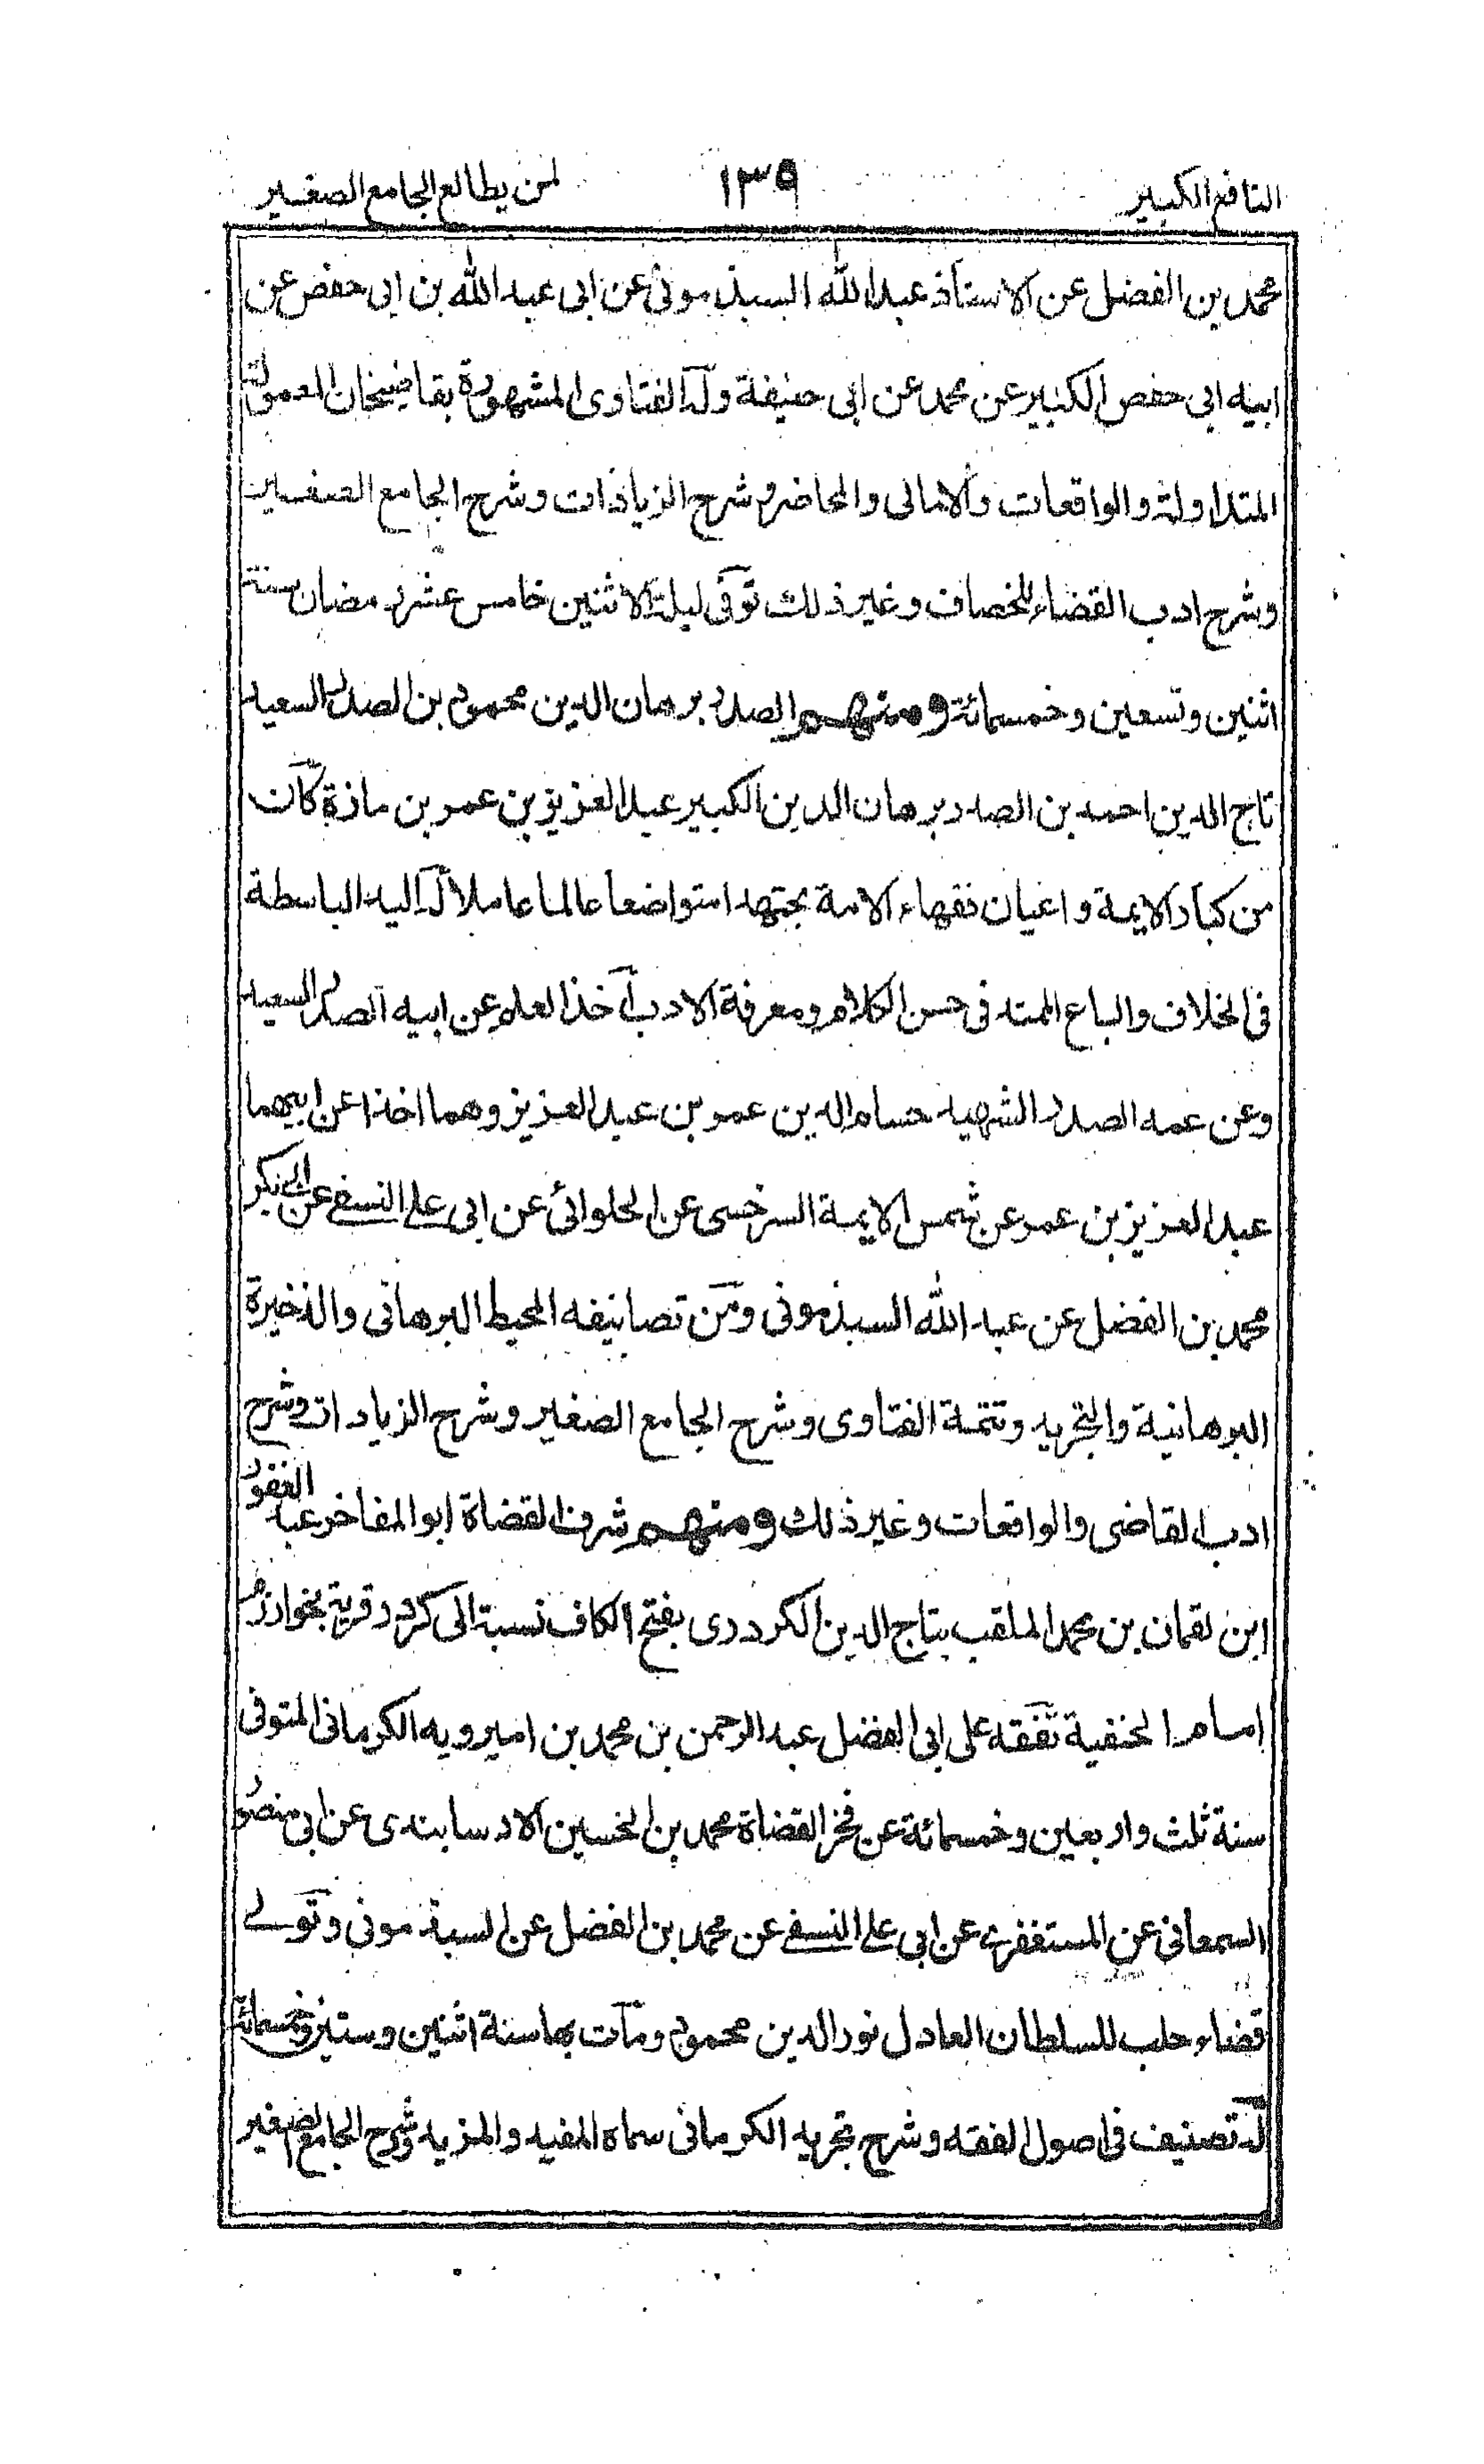 النافع الكبير ١٣٩ لمن يطالع الجامع الصغير
محمد بن الفضل عن الاستاذ عبد الله السبذموني عن ابى عبد الله بن ابى حفص عن
ابيه ابى حفص الكبير عن محمد عن ابى حنيفة وله الفتاوى المشهورة بقاضيخان المعمولة
المتداولة والواقعات والامالى والمحاضر وشرح الزيادات وشرح الجامع الصغير
وشرح ادب القضاء للخصاف وغير ذلك توفى ليلة الاثنين خامس عشر رمضان سنة
اثنين وتسعين وخمسمائة ومنهم الصدر برهان الدين محمود بن الصدر السعيد
تاج الدين احمد بن الصدر برهان الدين الكبير عبد العزيز بن عمر بن مازة كان
من كبار الايمة واعيان فقهاء الامة مجتهدا متواضعا عالما عاملا له اليد الباسطة
فى الخلاف والباع الممتد فى حسن الكلام ومعرفة الادب اخذ العلم عن ابيه الصدر السعيد
وعن عمه الصدر الشهيد حسام الدين عمر بن عبد العزيز وهما اخذا عن ابيهما
عبد العزيز بن عمر عن شمس الايمة السرخسى عن الحلوائى عن ابى على النسفى عن ابى بكر
محمد بن الفضل عن عبد الله السبذمونى ومن تصانيفه المحيط البرهانى والذخيرة
البرهانية والتجريد وتتمة الفتاوى وشرح الجامع الصغير وشرح الزيادات وشرح
ادب القاضى والواقعات وغير ذلك ومنهم شرف القضاة ابو المفاخر عبد الغفور
ابن لقمان بن محمد الملقب بتاج الدين الكردرى بفتح الكاف نسبة الى كردر قرية بخوارزم
امام الحنفية تفقه على ابى الفضل عبد الرحمن بن محمد بن اميرويه الكرمانى المتوفى
سنة ثلث واربعين وخمسمائة عن فخر القضاة محمد بن الحسين الارسابندى عن ابى منصور
السمعانى عن المستغفرى عن ابى على النسفى عن محمد بن الفضل عن السبذمونى وتولى
قضاء حلب للسلطان العادل نور الدين محمود ومات بها سنة اثنين وستين وخمسمائة
له تصنيف فى اصول الفقه وشرح تجريد الكرمانى سماه المفيد والمزيد وشرح الجامع الصغير